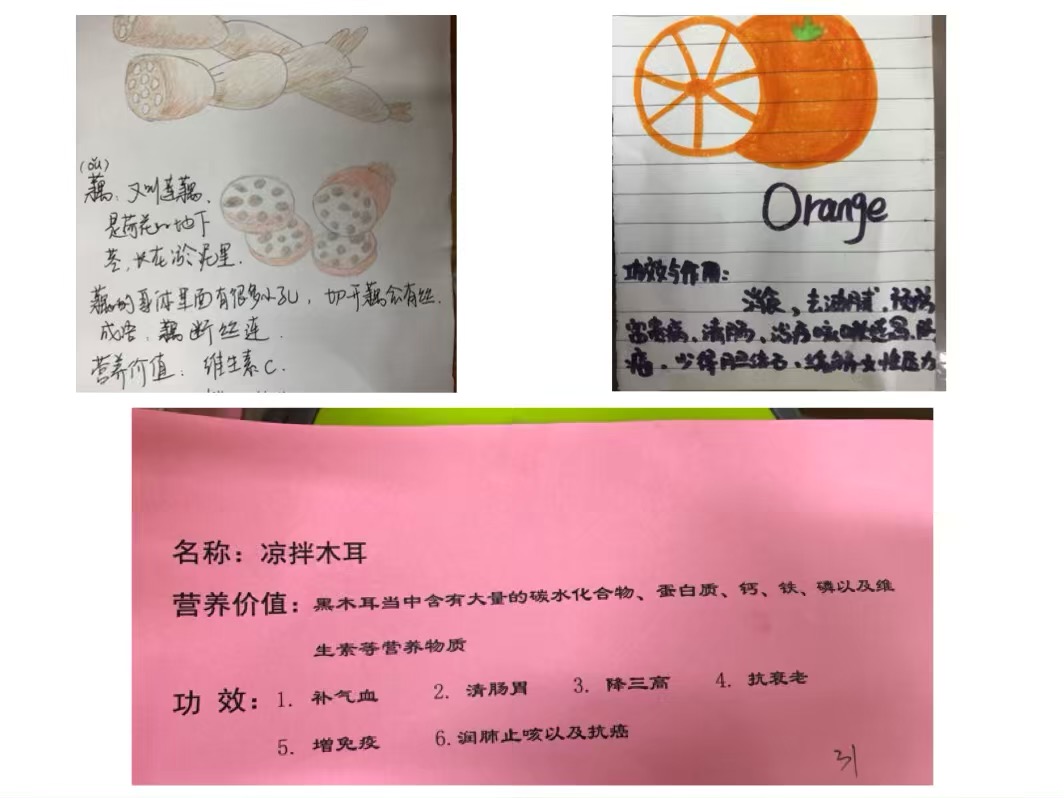 (ǒu)
藕,又叫莲藕,
是荷花的地下
茎,长在淤泥里.
藕的身体里面有很多小孔,切开藕会有丝.
成语:藕断丝连.
营养价值:维生素C.
Orange
功效与作用:
消食、去油腻、预防
清肠、治疗咳嗽
少得胆结石、缓解女性压力
名称:凉拌木耳
营养价值:黑木耳当中含有大量的碳水化合物、蛋白质、钙、铁、磷以及维
生素等营养物质
功 效:1. 补气血 2. 清肠胃 3. 降三高 4. 抗衰老
5. 增免疫 6.润肺止咳以及抗癌
31